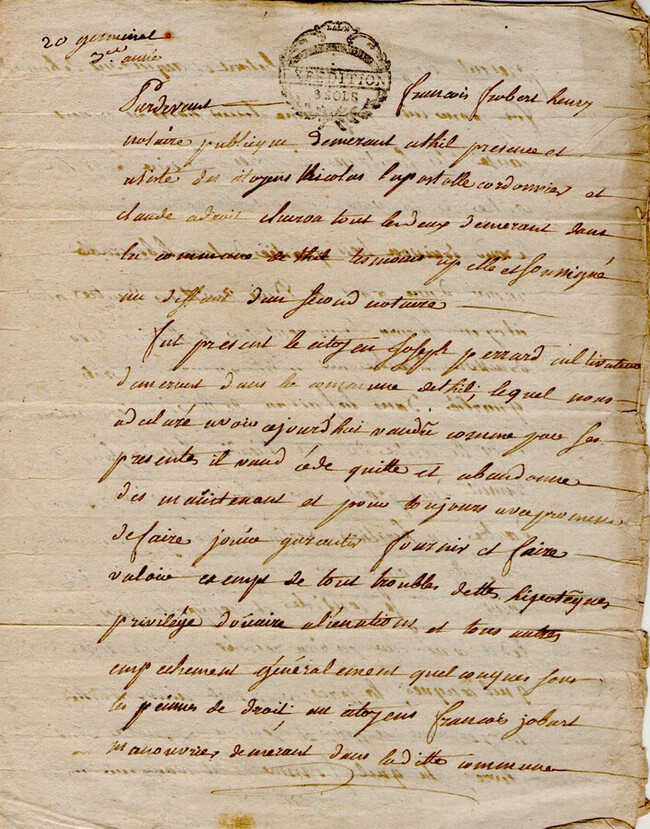 20 germinal
3eme année
EXPEDITION
8 SOLS
Pardevant francois frobert henry
notaire publique demerant athil presence et
asisté des citoyens Nicolas lapostolle cordonnier et
claude adroit charon tout lesdeux demerant dans
la commune de thil tesmoins apellé et sousigné
au deffaut dun second notaire
fut present le citoyen Joseph perrard cultivateur
demerant dans la commune dethil lequel nous
adeclaré avoir cejourd'hui vandu comme par ses
presentes il vand cede quitte et abandonne
des maintenant et pour toujours avec promesse
de faire jouire garantir fournir et faire
valoir exempt de tout troubles dettes hipoteques
privilege douaire aliénations et tous autres
empechement généralement quelconques sous
les peinnes de droit au citoyens francois jobart
manouvrier demerant dans laditte commune